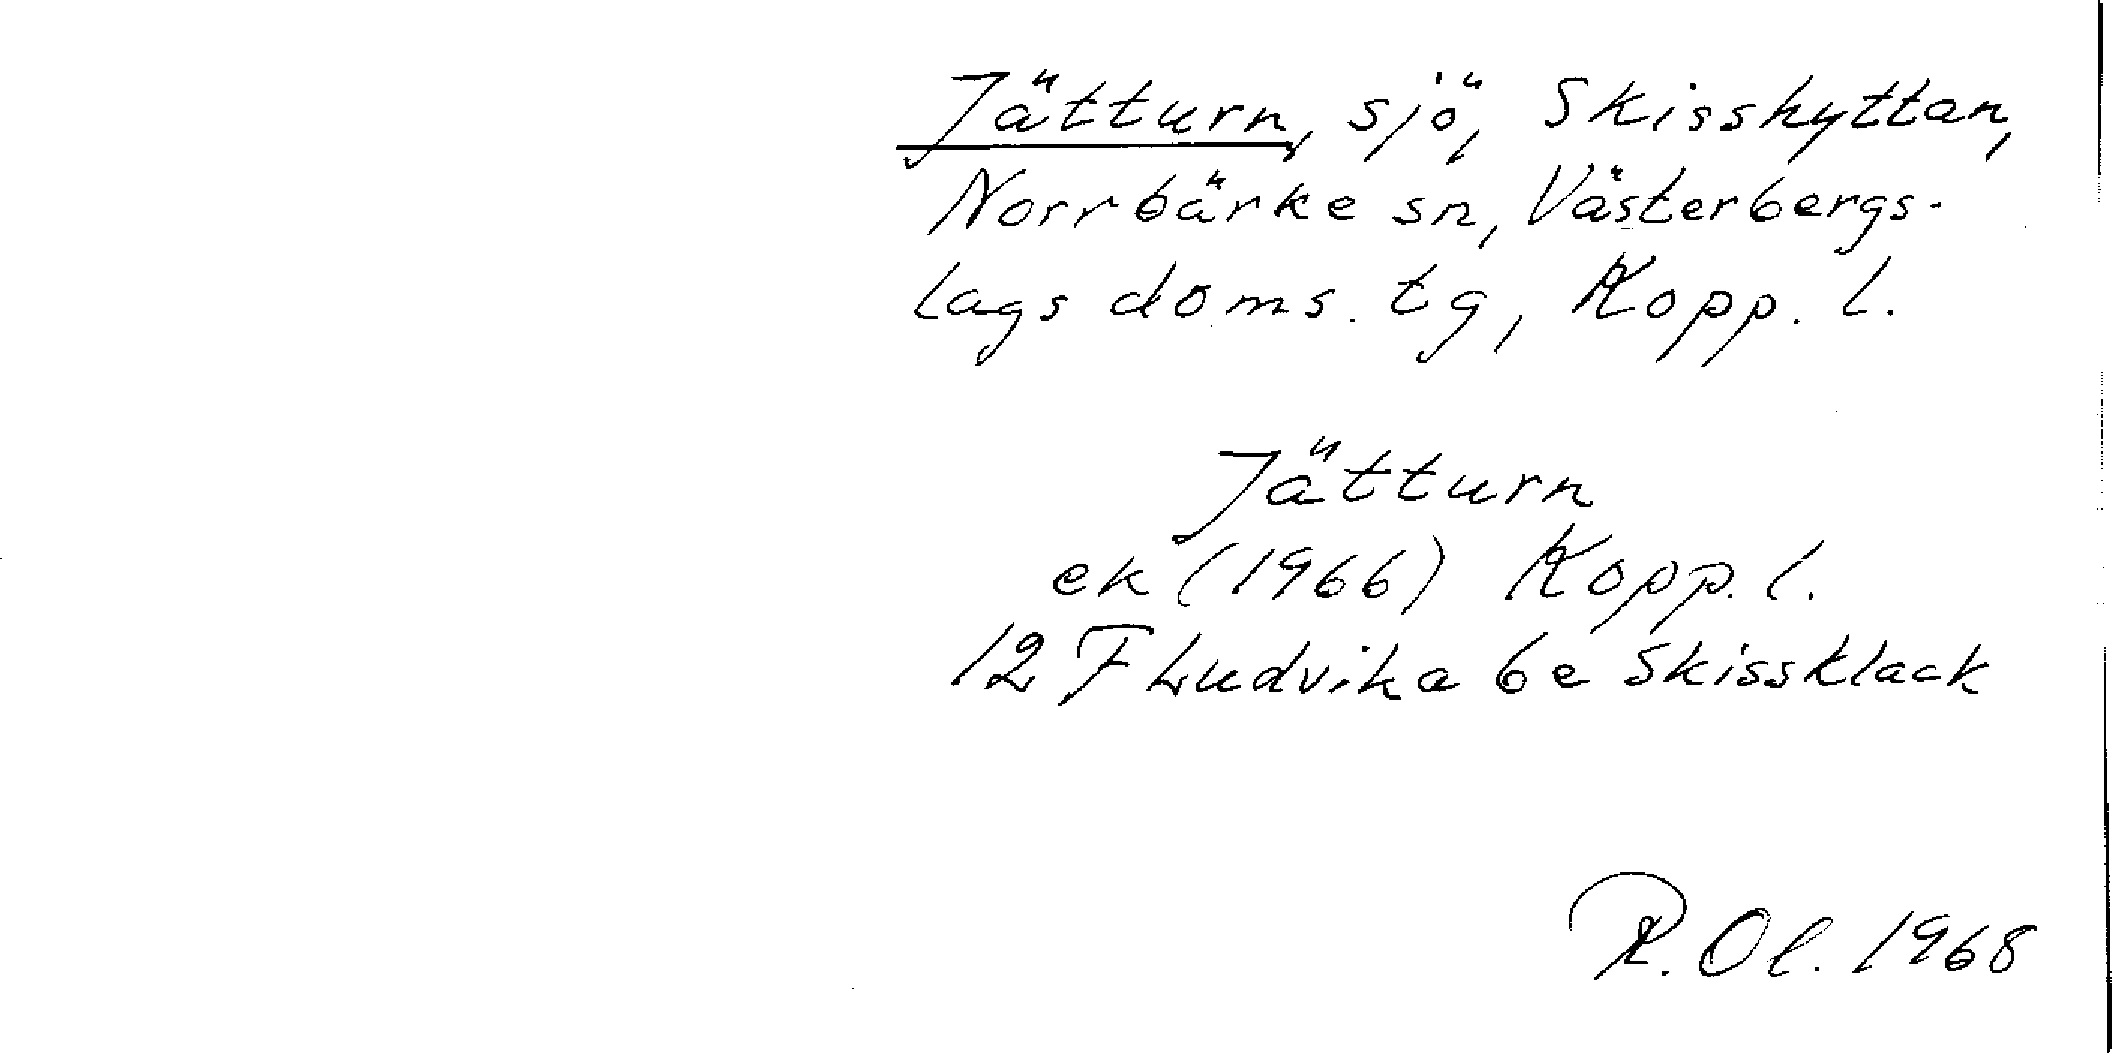 Jätturn, sjö, Skisshyttan,
Norrbärke sn, Västerbergs-
lags doms. tg, Kopp. l.
Jätturn
ek (1966) Kopp. l.
12 F Ludvika 6e Skissklack
R. Ol. 1968